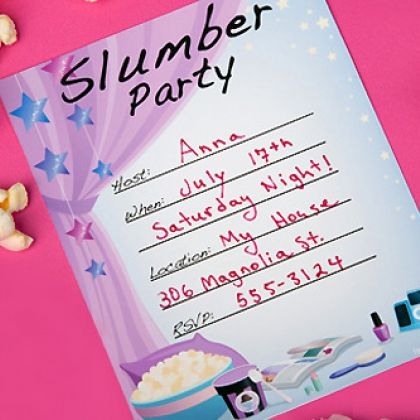 Slumber
Party
Host: Anna
When: July 17th
Saturday Night!
Location: My House
306 Magnolia St.
RSVP: 555-3124